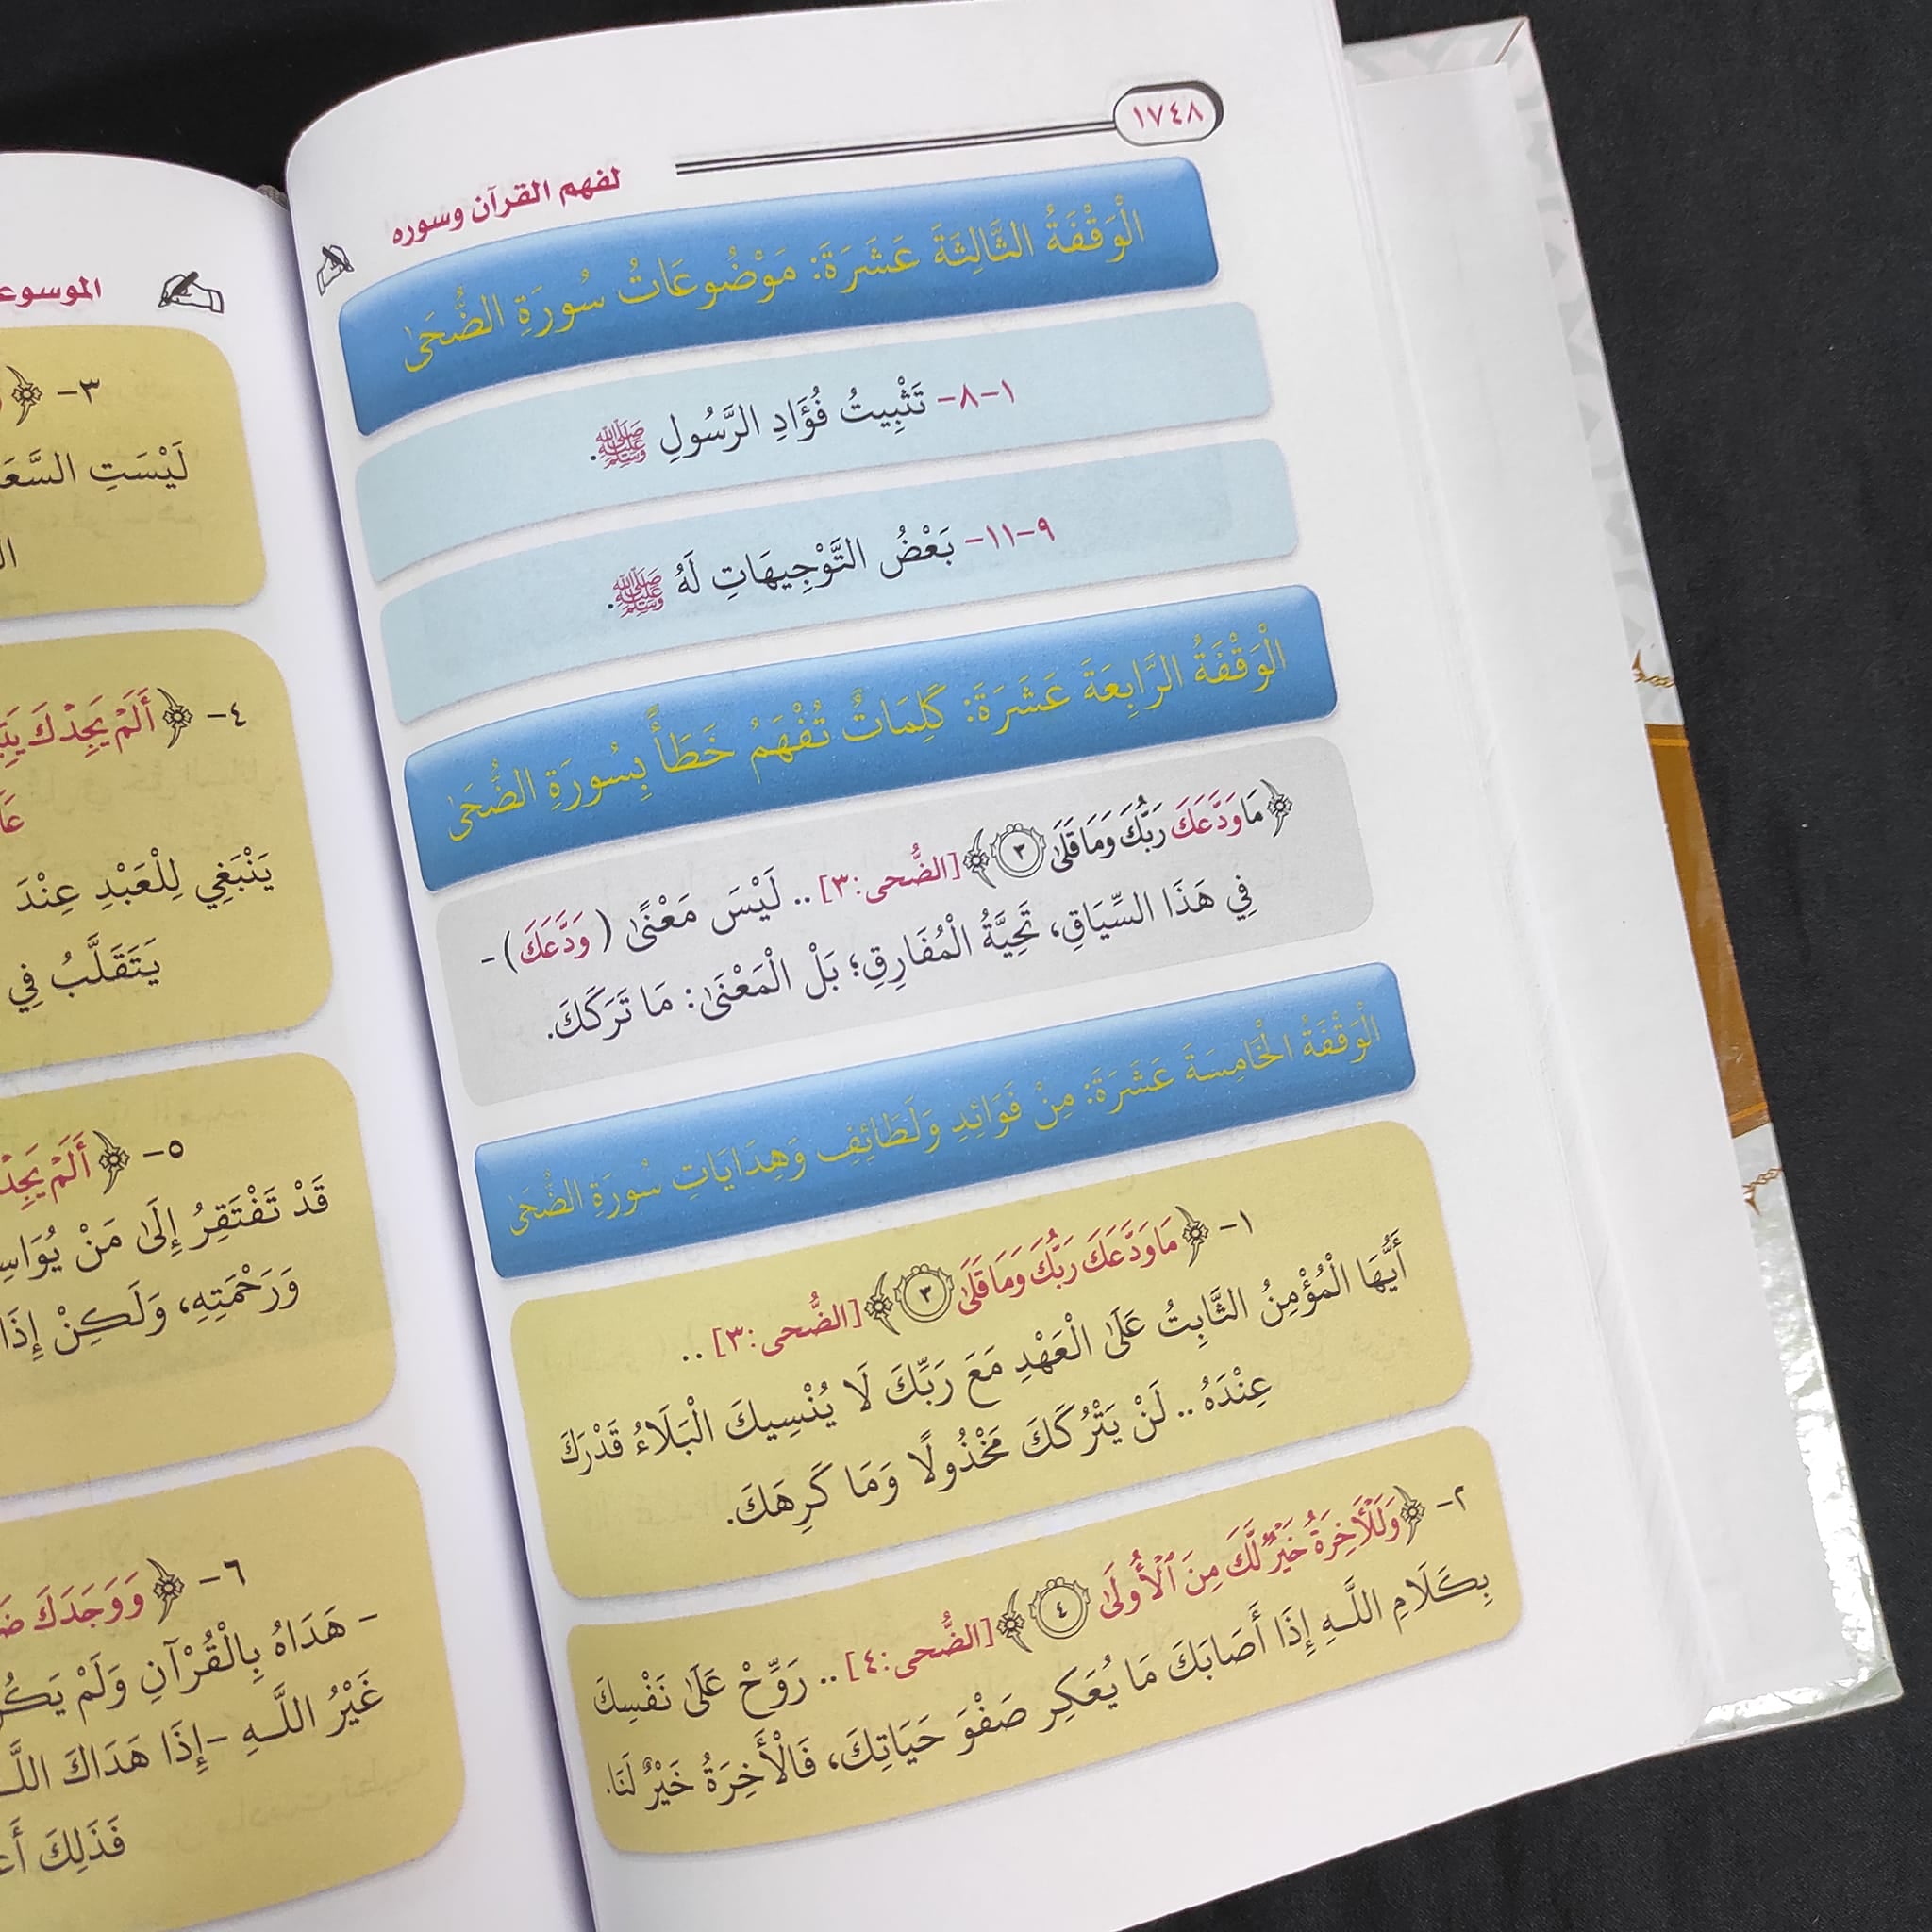 ١٧٤٨
لفهم القرآن وسوره
الْوَقْفَةُ الثَّالِثَةَ عَشَرَةَ: مَوْضُوعَاتُ سُورَةِ الضُّحَىٰ
١-٨- تَثْبِيتُ فُؤَادِ الرَّسُولِ ﷺ.
٩-١١- بَعْضُ التَّوْجِيهَاتِ لَهُ ﷺ.
الْوَقْفَةُ الرَّابِعَةَ عَشَرَةَ: كَلِمَاتٌ تُفْهَمُ خَطَأً بِسُورَةِ الضُّحَىٰ
﴿مَا وَدَّعَكَ رَبُّكَ وَمَا قَلَىٰ ٣﴾ [الضُّحى:٣] .. لَيْسَ مَعْنًىٰ ( وَدَّعَكَ) -
فِي هَذَا السِّيَاقِ، تَحِيَّةُ الْمُفَارِقِ؛ بَلْ الْمَعْنَىٰ: مَا تَرَكَكَ.
الْوَقْفَةُ الْخَامِسَةَ عَشَرَةَ: مِنْ فَوَائِدِ وَلَطَائِفِ وَهِدَايَاتِ سُورَةِ الضُّحَىٰ
١- ﴿مَا وَدَّعَكَ رَبُّكَ وَمَا قَلَىٰ ٣﴾ [الضُّحى:٣] ..
أَيُّهَا الْمُؤْمِنُ الثَّابِتُ عَلَىٰ الْعَهْدِ مَعَ رَبِّكَ لَا يُنْسِيكَ الْبَلَاءُ قَدْرَكَ
عِنْدَهُ .. لَنْ يَتْرُكَكَ مَخْذُولًا وَمَا كَرِهَكَ.
٢- ﴿وَلَلْأَخِرَةُ خَيْرٌ لَّكَ مِنَ ٱلْأُولَىٰ ٤﴾ [الضُّحى:٤] .. رَوِّحْ عَلَىٰ نَفْسِكَ
بِكَلَامِ اللَّـهِ إِذَا أَصَابَكَ مَا يُعَكِر صَفْوَ حَيَاتِكَ، فَالْأَخِرَةُ خَيْرٌ لَنَا.
٣- ﴿
لَيْسَتِ
٤- ﴿أَلَمْ يَجِدْكَ
يَنْبَغِي لِلْعَبْدِ عِنْدَ
يَتَقَلَّبُ فِي
٥- ﴿أَلَمْ
قَدْ تَفْتَقِرُ إِلَىٰ مَنْ
وَرَحْمَتِهِ، وَلَكِنْ إِذَا
٦- ﴿وَوَجَدَكَ
- هَدَاهُ بِالْقُرْآنِ وَلَمْ
غَيْرُ اللَّـهِ -إِذَا هَدَاكَ
فَذَلِكَ